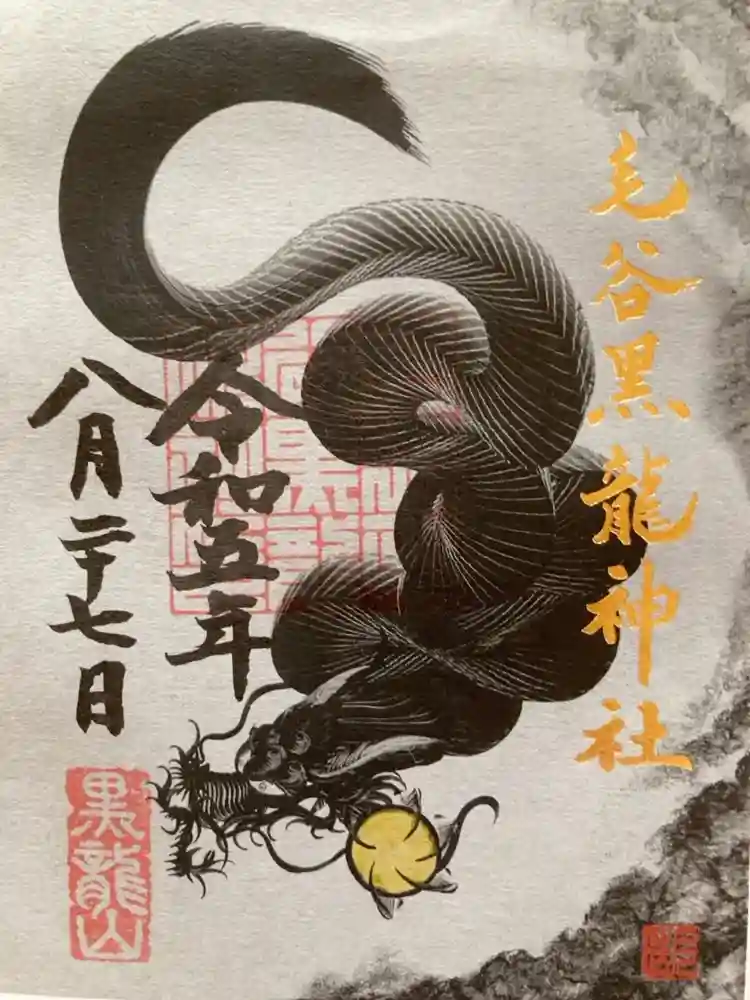 毛谷黒龍神社
令和五年
八月二十七日
黒龍山